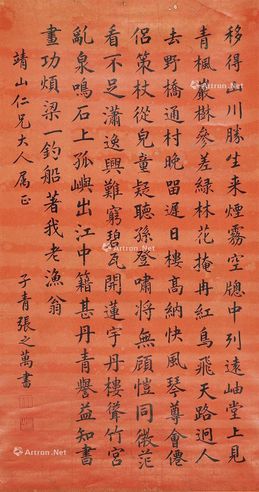 移得川勝生来煙霧空牎中列遠岫堂上見
青楓巖樹參差綠林花掩冉紅鳥飛天路迥人
去野橋通村晚留遲日樓高納快風琴尊會僊
侶策杖從兒童疑聽孫登嘯將無顧愷同微茫
看不足瀟逸興難窮碧瓦開蓮宇丹樓聳竹宮
亂泉鳴石上孤嶼出江中籍甚丹青譽益知書
畫功煩梁一釣船著我老漁翁
靖山仁兄大人属正
子青張之萬書
Artron.Net
Artron.Net
Artron.Net
Artron.Net
Artron.Net